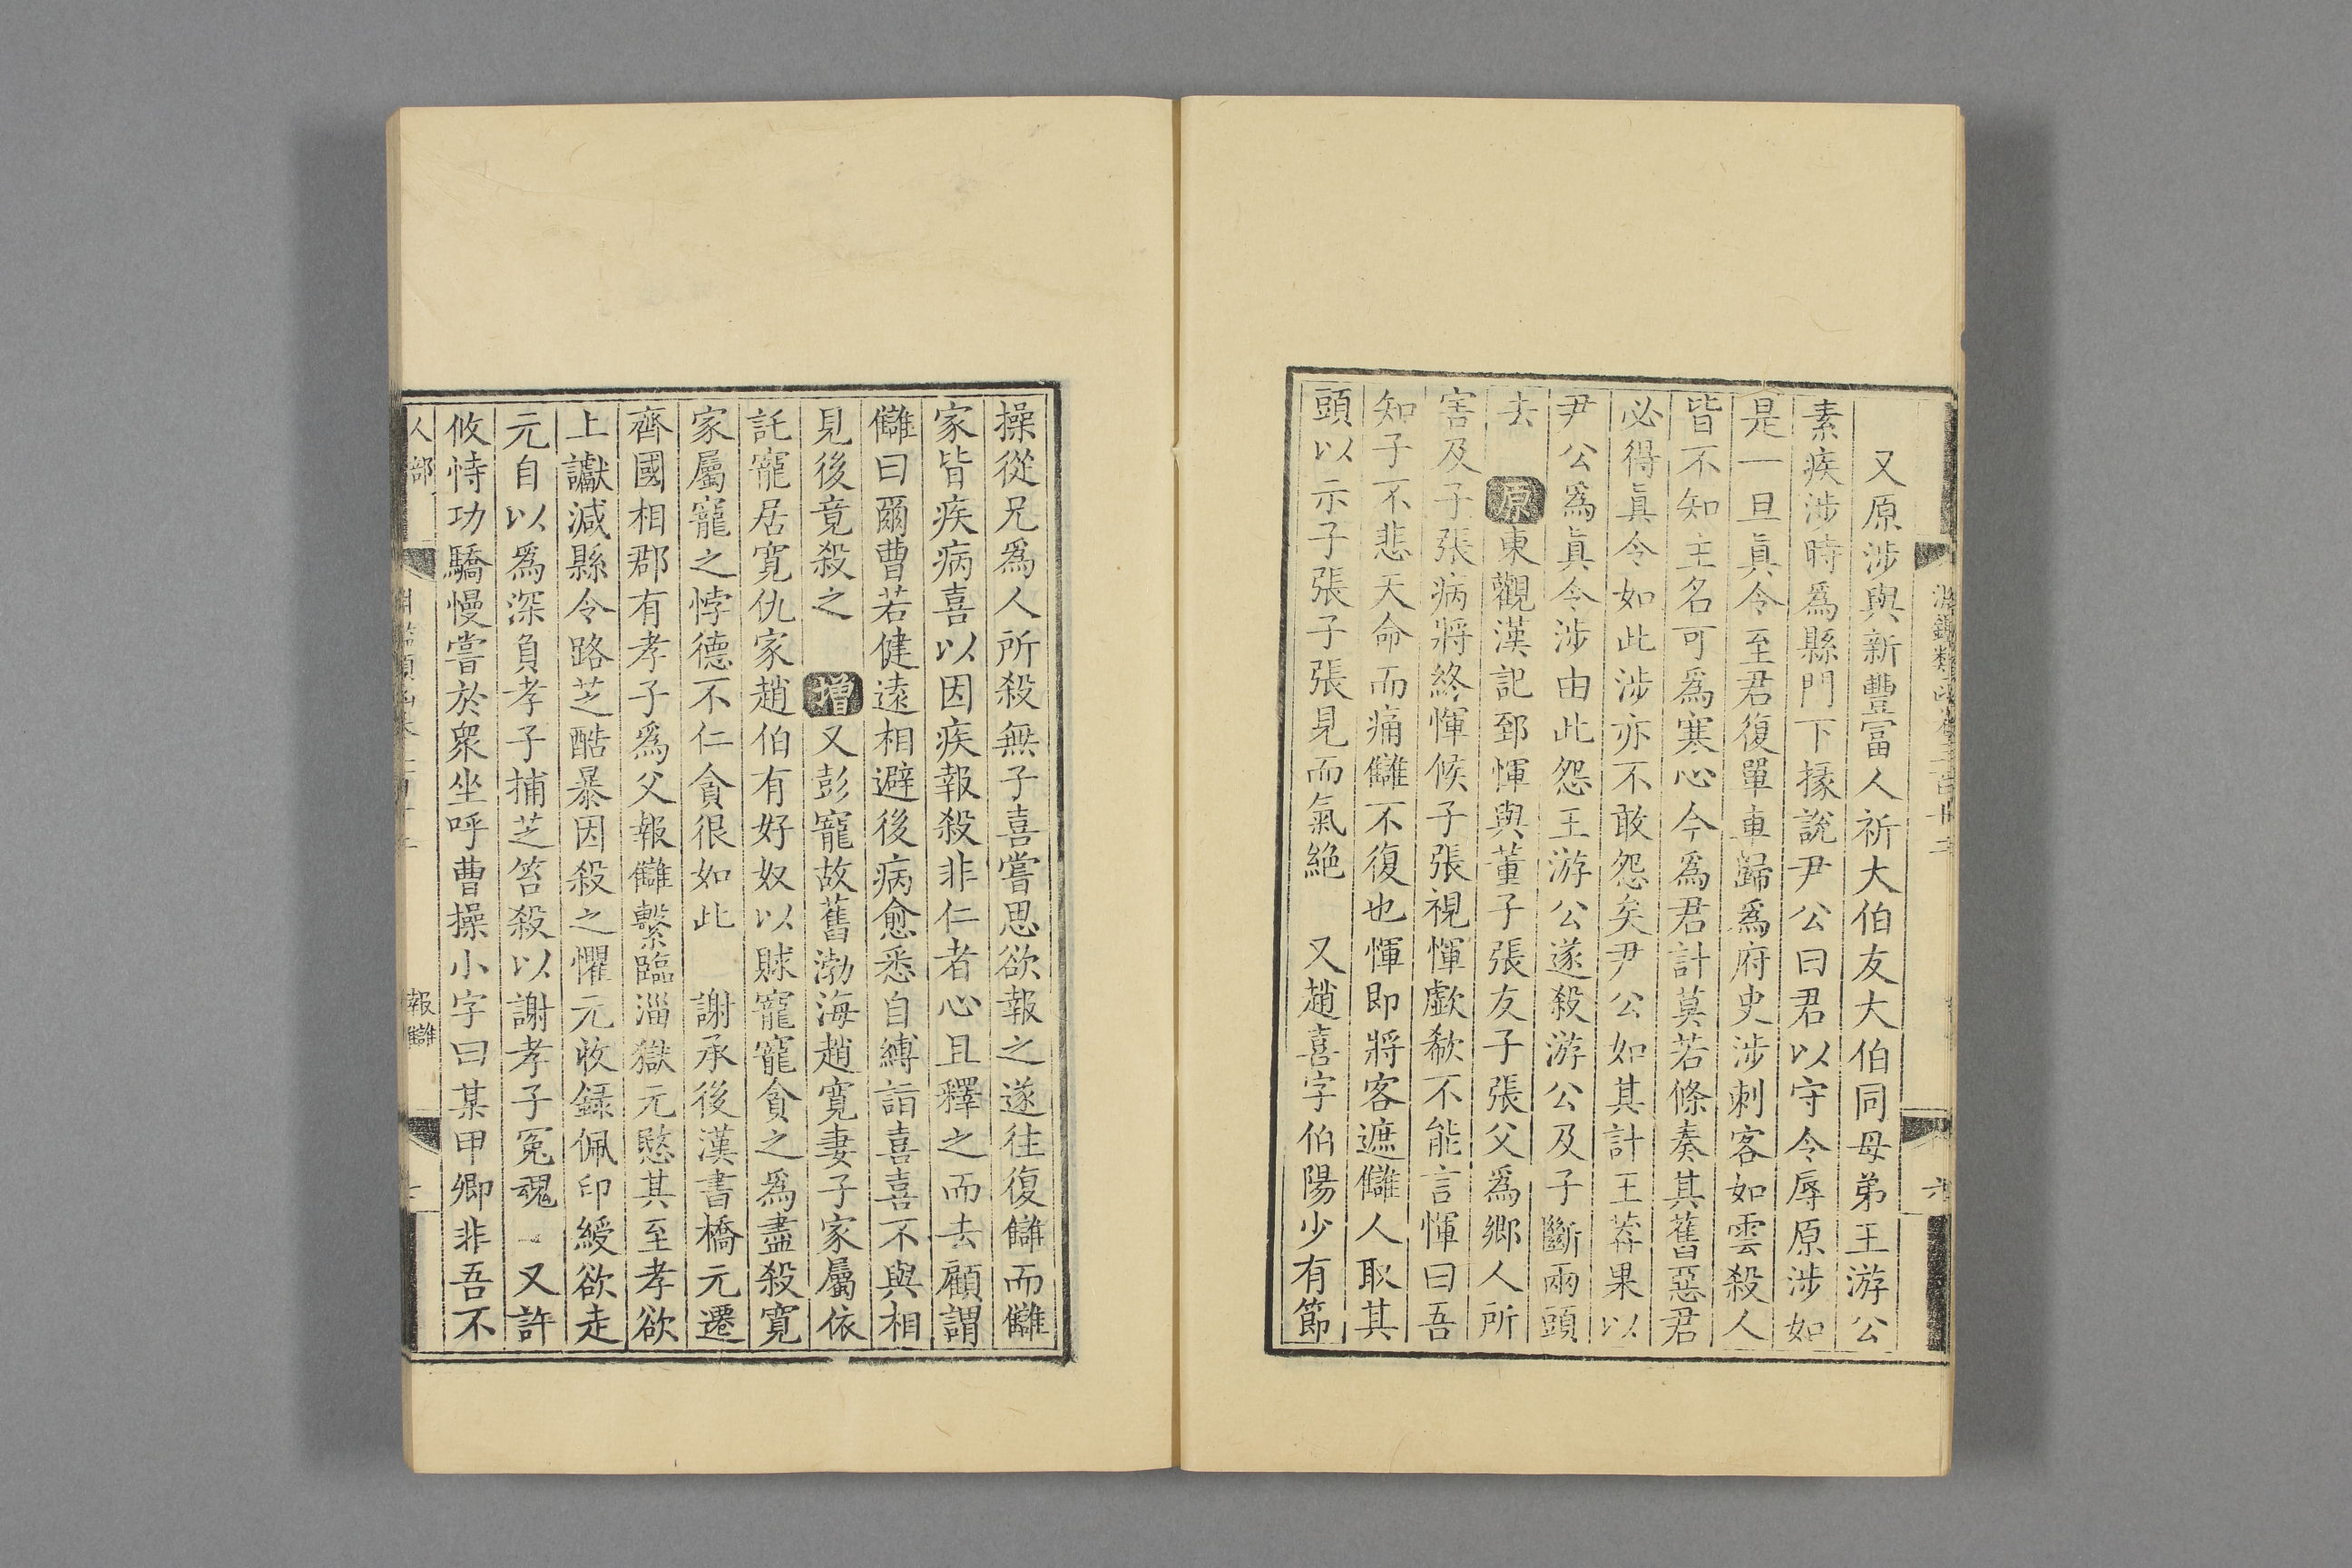 又原涉與新豐富人祈大伯友大伯同母弟王游公
素疾涉時爲縣門下掾說尹公曰君以守令辱原涉如
是一旦眞令至君復單車歸爲府史涉刺客如雲殺人
皆不知主名可爲寒心今爲君計莫若條奏其舊惡君
必得眞令如此涉亦不敢怨矣尹公如其計王莽果以
尹公爲眞令涉由此怨王游公遂殺游公及子斷兩頭
去 原東觀漢記郅惲與董子張友子張父爲鄉人所
害及子張病將終惲候子張視惲歔欷不能言惲曰吾
知子不悲天命而痛讎不復也惲即將客遮讎人取其
頭以示子張子張見而氣絶 又趙喜字伯陽少有節
六
操從兄爲人所殺無子喜嘗思欲報之遂往復讎而讎
家皆疾病喜以因疾報殺非仁者心且釋之而去顧謂
讎曰爾曹若健遠相避後病愈悉自縛詣喜喜不與相
見後竟殺之 増又彭寵故舊渤海趙寬妻子家屬依
託寵居寬仇家趙伯有好奴以賕寵寵貪之爲盡殺寬
家屬寵之悖德不仁貪很如此 謝承後漢書橋元遷
齊國相郡有孝子爲父報讎繫臨淄獄元愍其至孝欲
上讞減縣令路芝酷暴因殺之懼元收録佩印綬欲走
元自以爲深負孝子捕芝笞殺以謝孝子冤魂 又許
攸恃功驕慢嘗於衆坐呼曹操小字曰某甲卿非吾不
人部
報讎